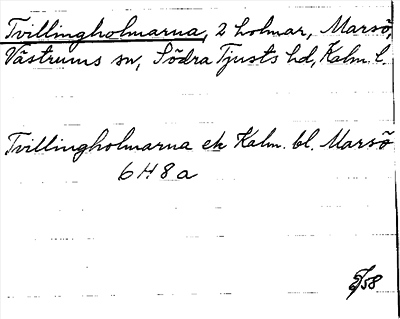 Tvillingholmarna, 2 holmar, Marsö,
Västrums sn, Södra Tjusts hd, Kalm. l.
Tvillingholmarna ek Kalm. bl. Marsö
6 H 8 a
/58